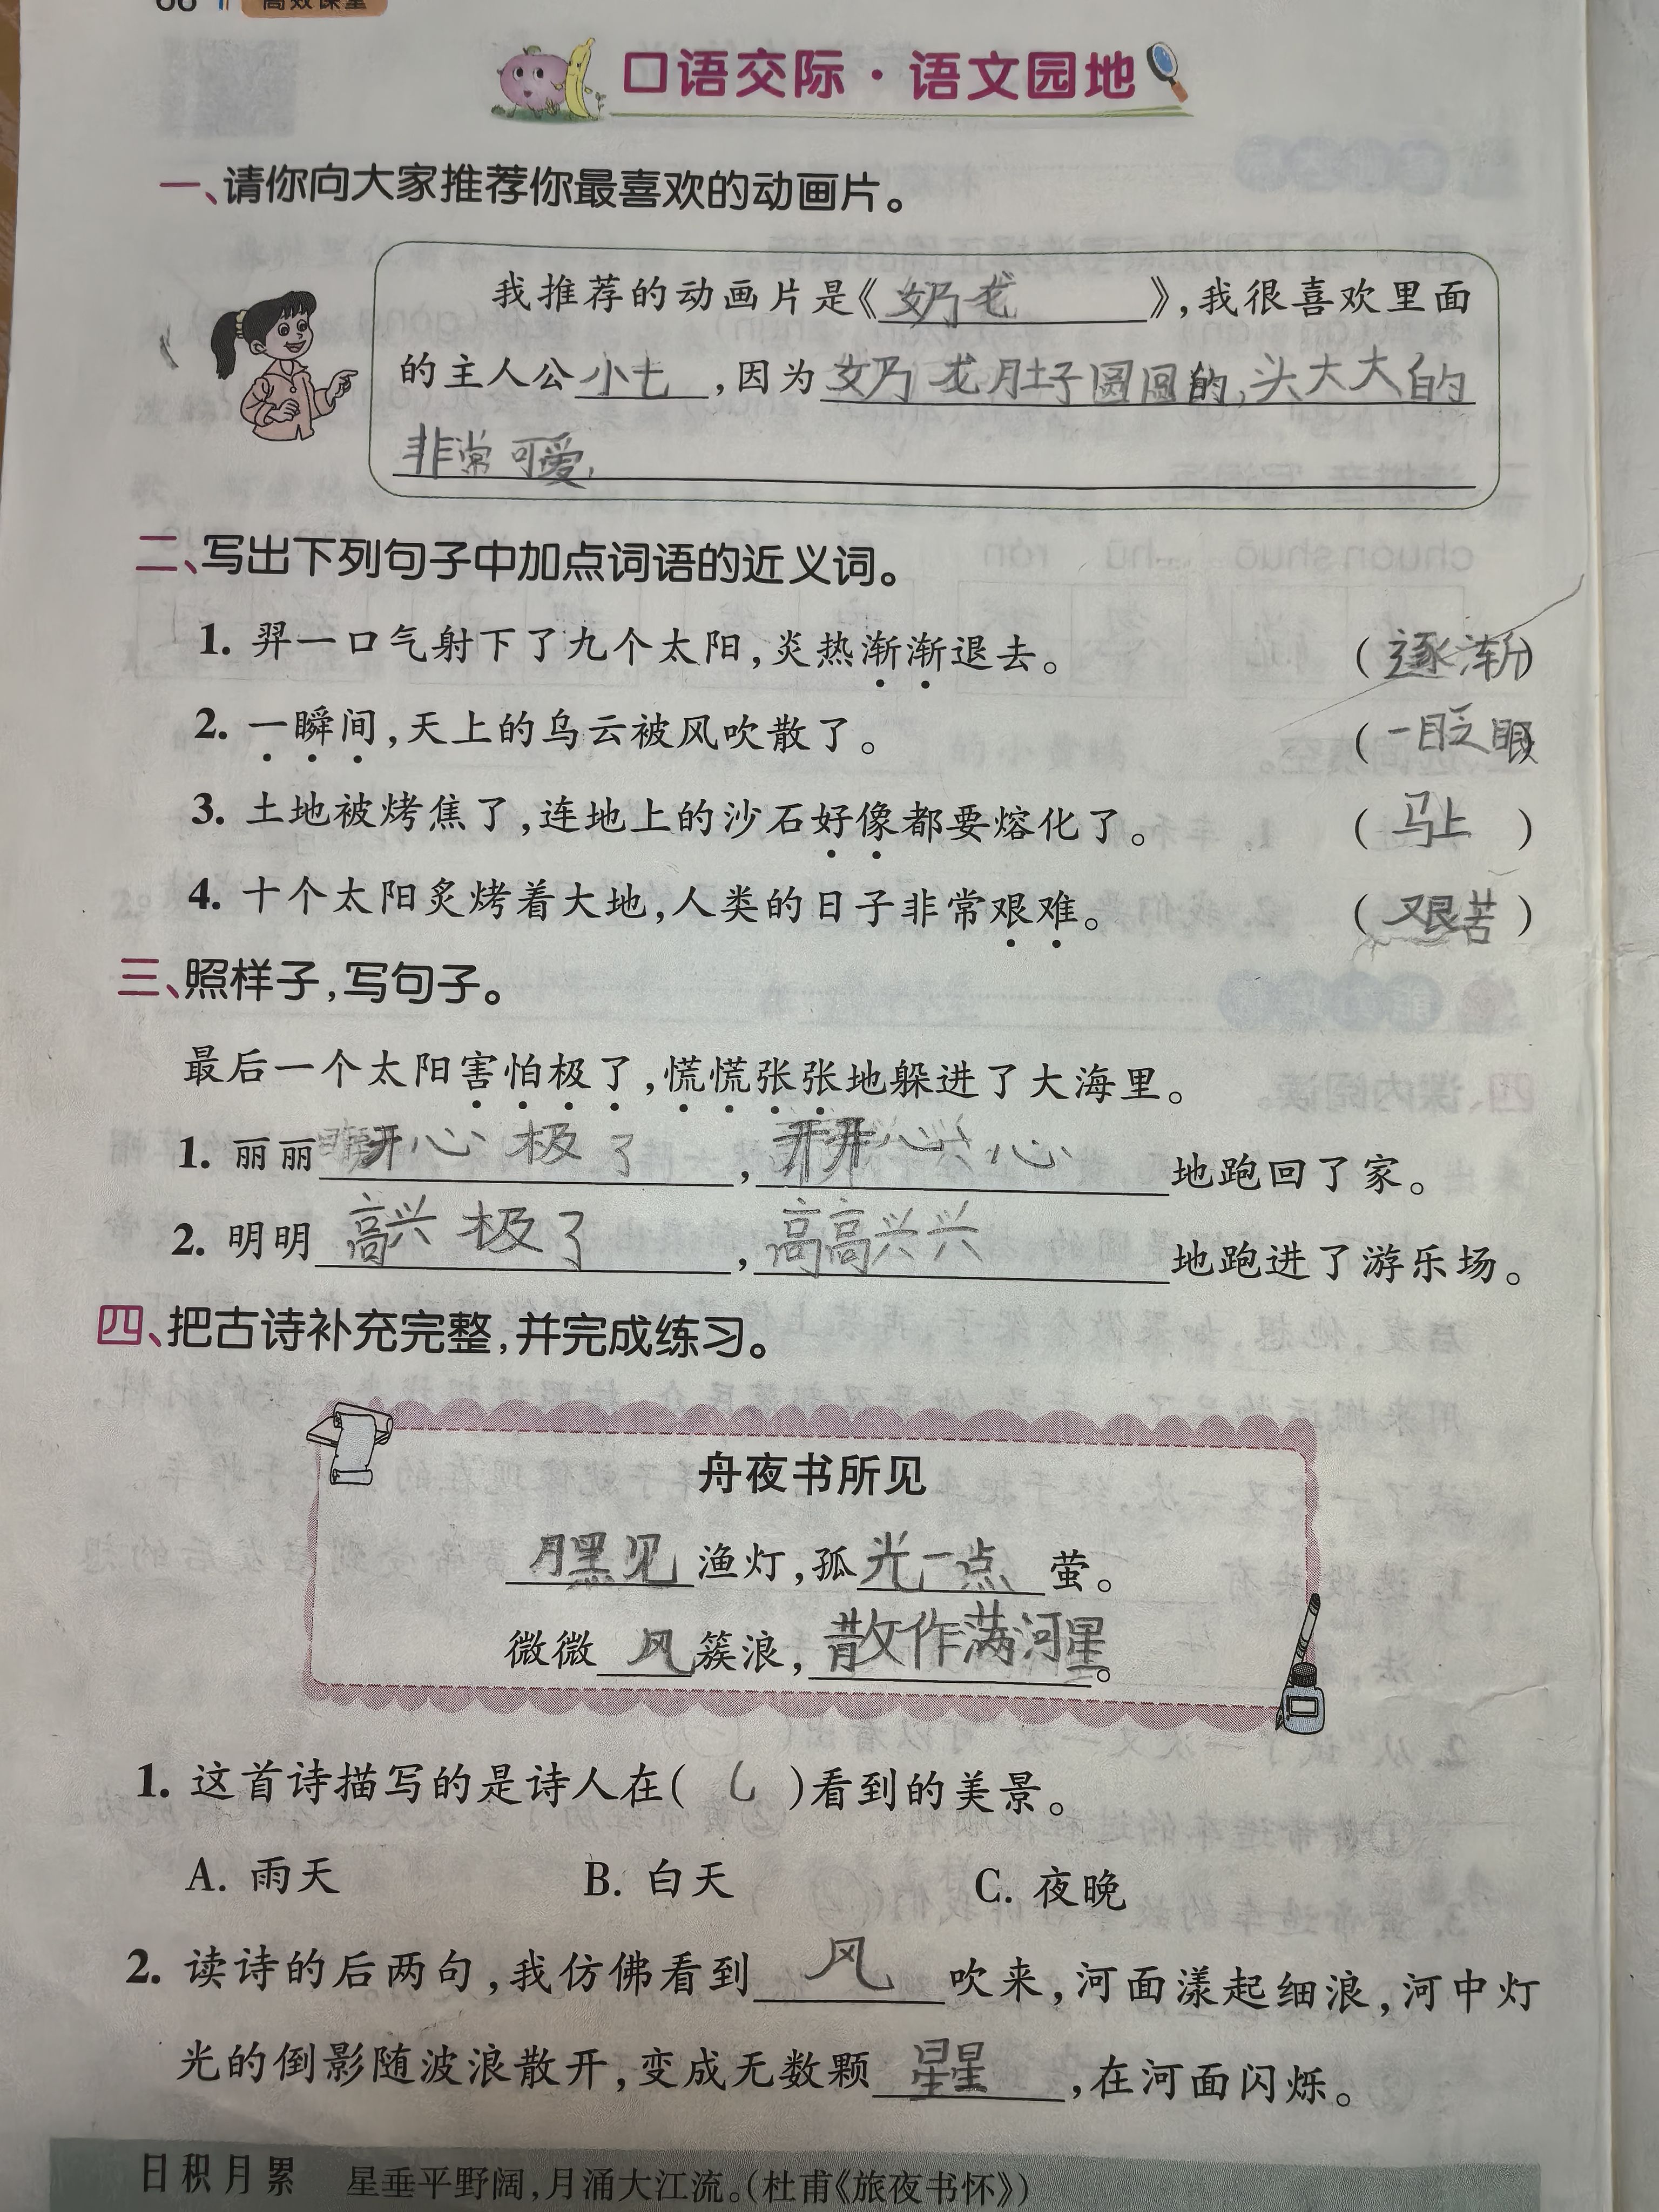 高效课堂
口语交际·语文园地
一、请你向大家推荐你最喜欢的动画片。
我推荐的动画片是《奶龙》,我很喜欢里面
的主人公小七,因为奶龙肚子圆圆的,头大大的
非常可爱,
二、写出下列句子中加点词语的近义词。
1. 羿一口气射下了九个太阳,炎热渐渐退去。(逐渐)
2. 一瞬间,天上的乌云被风吹散了。(一眨眼)
3. 土地被烤焦了,连地上的沙石好像都要熔化了。(马上)
4. 十个太阳炙烤着大地,人类的日子非常艰难。(艰苦)
三、照样子,写句子。
最后一个太阳害怕极了,慌慌张张地躲进了大海里。
1. 丽丽开心极了,开开心心地跑回了家。
2. 明明高兴极了,高高兴兴地跑进了游乐场。
四、把古诗补充完整,并完成练习。
舟夜书所见
月黑见渔灯,孤光一点萤。
微微风簇浪,散作满河星。
1. 这首诗描写的是诗人在( C )看到的美景。
A. 雨天 B. 白天 C. 夜晚
2. 读诗的后两句,我仿佛看到风吹来,河面漾起细浪,河中灯
光的倒影随波浪散开,变成无数颗星星,在河面闪烁。
日积月累 星垂平野阔,月涌大江流。(杜甫《旅夜书怀》)